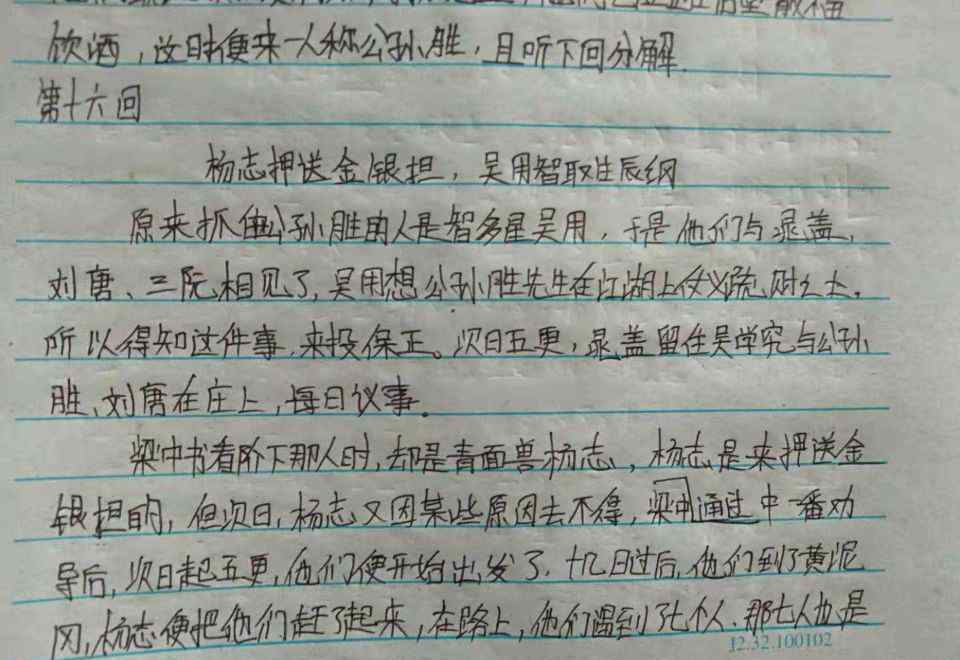 饮酒，这时便来一人称公孙胜，且听下回分解.
第十六回
杨志押送金银担，吴用智取生辰纲
原来抓住公孙胜的人是智多星吴用，于是他们与晁盖、
刘唐、三阮相见了，吴用想公孙胜先生在江湖上仗义疏财之士，
所以得知这件事，来投保正。次日五更，晁盖留住吴学究与公孙
胜、刘唐在庄上，每日议事。
梁中书看阶下那人时，却是青面兽杨志，杨志是来押送金
银担的，但次日，杨志又因某些原因去不得，梁中通过中一番劝
导后，次日起五更，他们便开始出发了.十几日过后，他们到了黄泥
冈，杨志便把他们赶了起来，在路上，他们遇到了七个人.那七人也是
12.32.100102